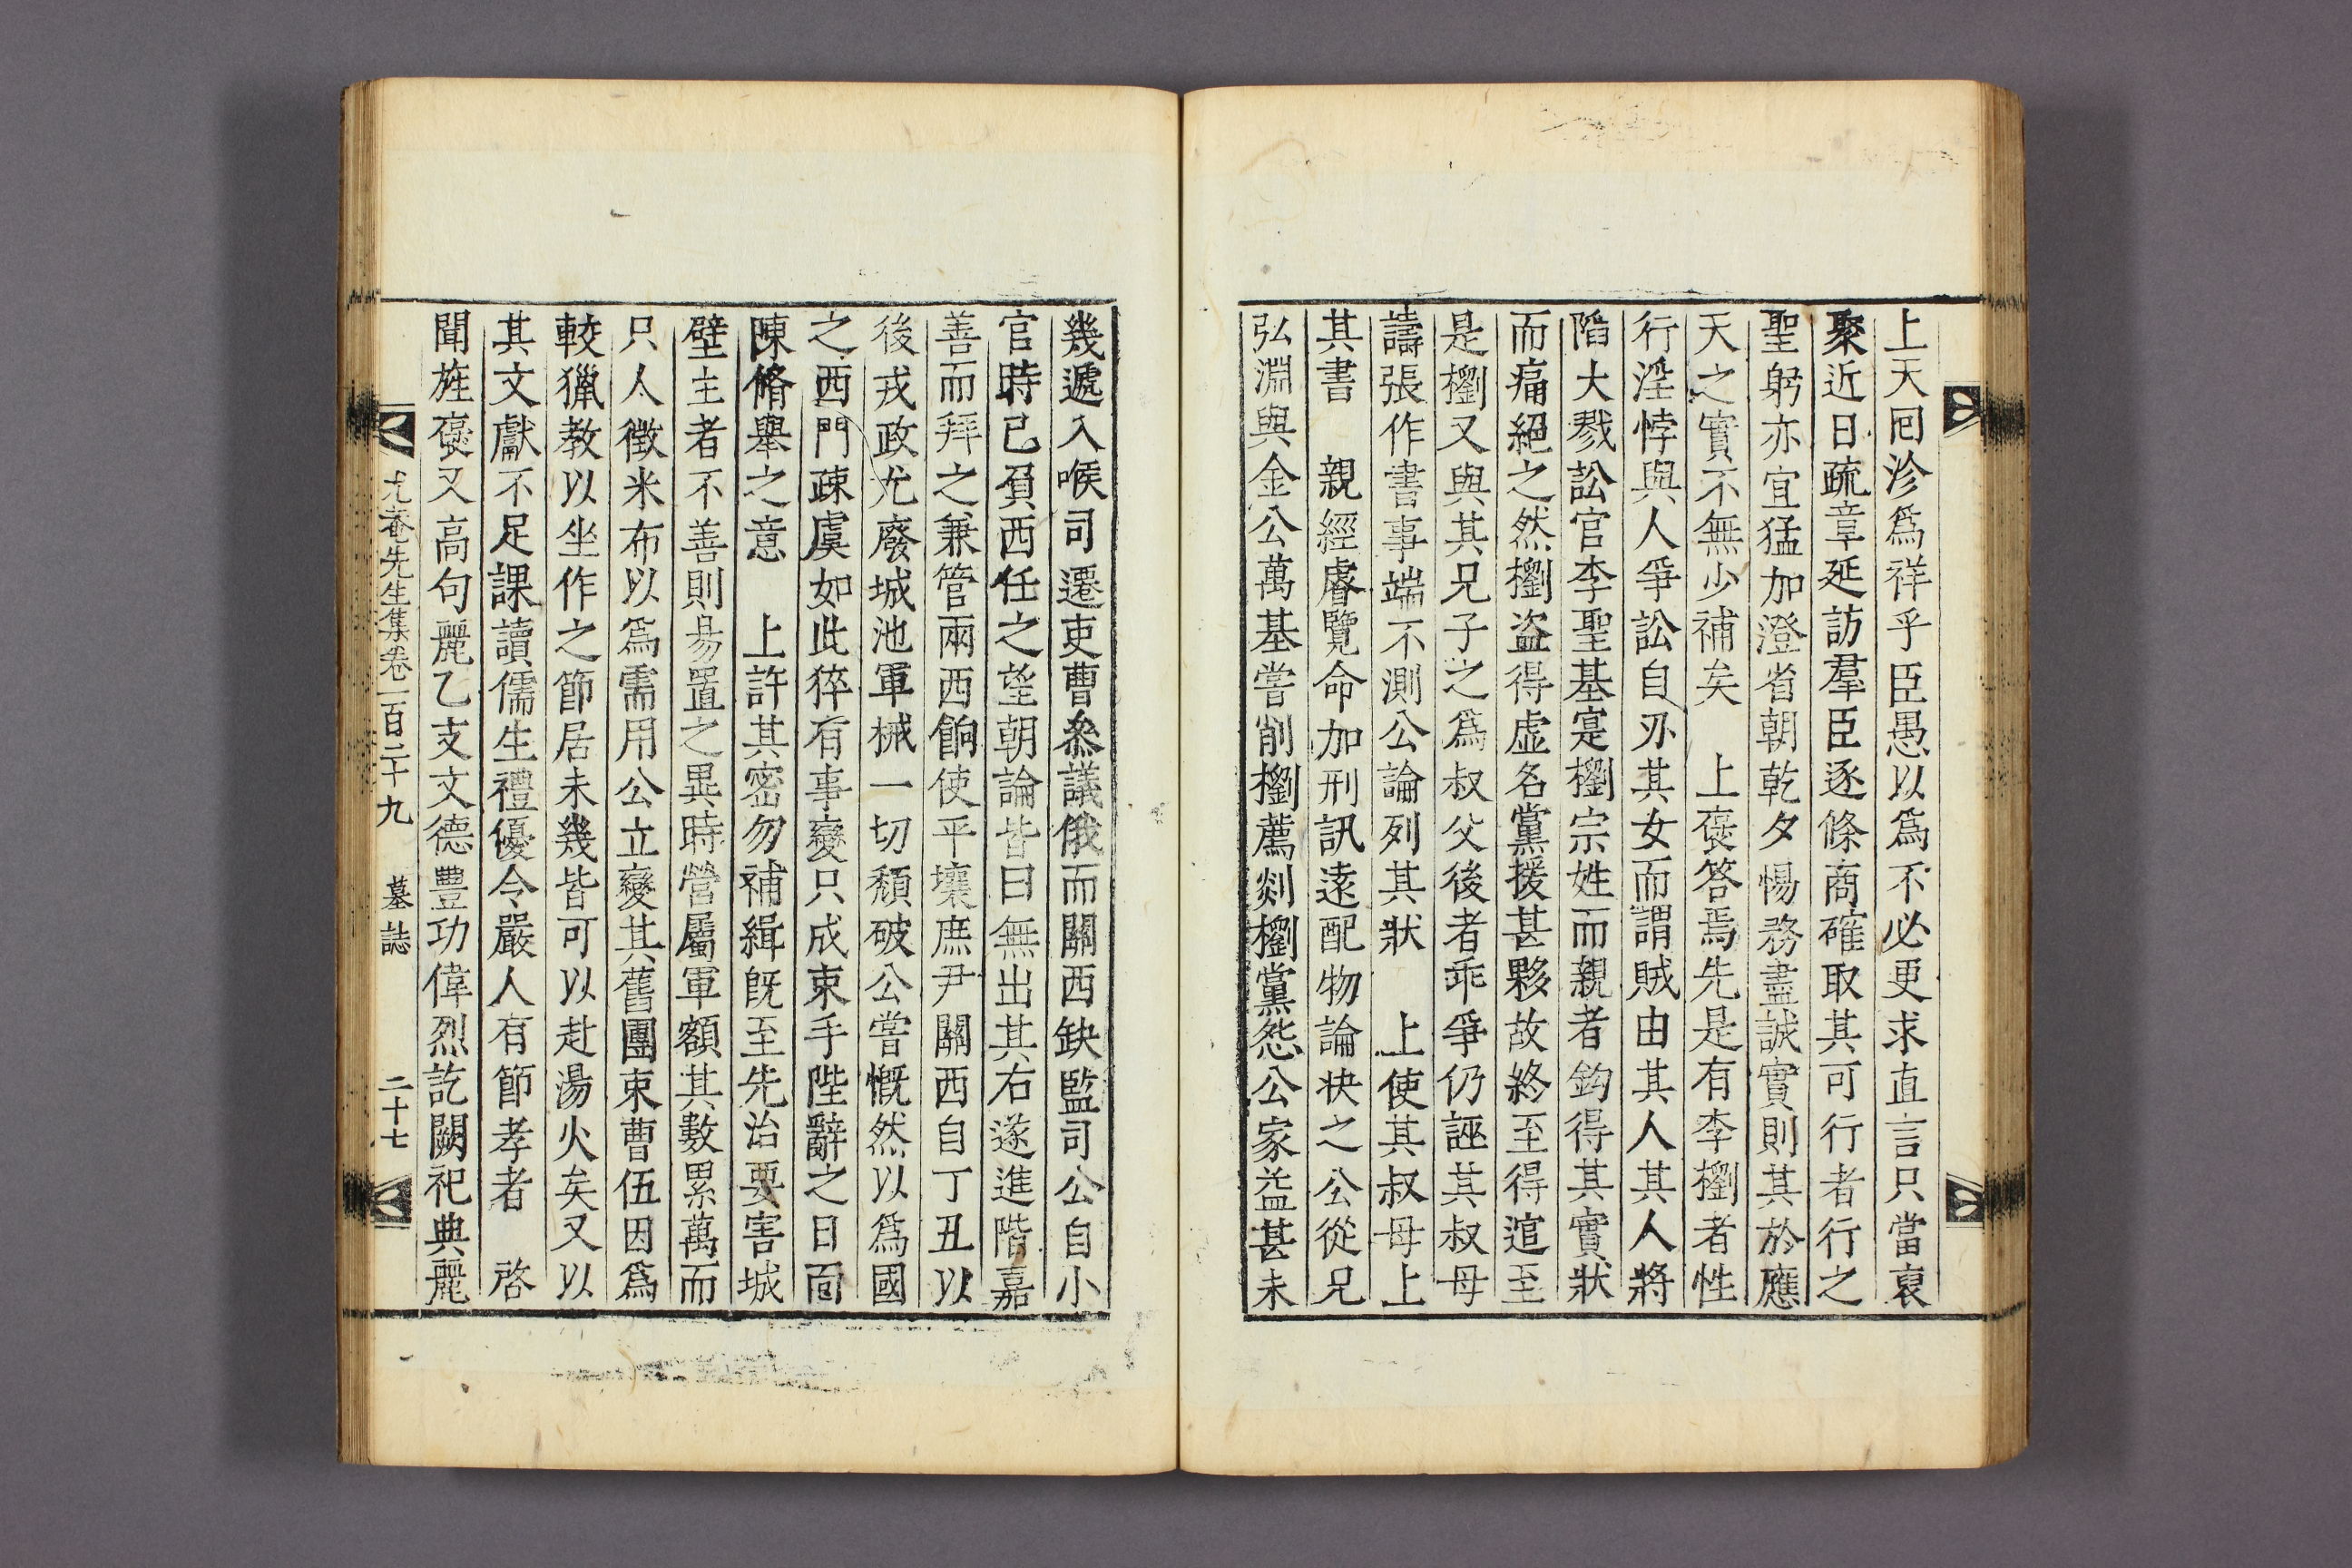 上天回沴爲祥乎臣愚以爲不必更求直言只當裒
聚近日疏章延訪羣臣逐條商確取其可行者行之
聖躬亦宜猛加澄省朝乾夕惕務盡誠實則其於應
天之實不無少補矣　上褒答焉先是有李㵧者性
行淫悖與人爭訟自刃其女而謂賊由其人其人將
陷大戮訟官李聖基寔㵧宗姓而親者鈎得其實狀
而痛絕之然㵧盜得虛名黨援甚夥故終至得逭至
是㵧又與其兄子之爲叔父後者乖爭仍誣其叔母
譸張作書事端不測公論列其狀　上使其叔母上
其書　親經睿覽命加刑訊遠配物論快之公從兄
弘淵與金公萬基嘗削㵧薦剡㵧黨怨公家益甚未
幾遞入喉司遷吏曹叅議俄而關西缺監司公自小
官時已負西任之望朝論皆曰無出其右遂進階嘉
善而拜之兼管兩西餉使平壤庶尹關西自丁丑以
後戎政尤廢城池軍械一切頹破公嘗慨然以爲國
之西門疎虞如此猝有事變只成束手陛辭之日面
陳脩舉之意　上許其密勿補緝旣至先治要害城
壁主者不善則易置之異時營屬軍額其數累萬而
只人徵米布以爲需用公立變其舊團束曹伍因爲
較獵教以坐作之節居未幾皆可以赴湯火矣又以
其文獻不足課讀儒生禮優令嚴人有節孝者　啓
聞旌褒又高句麗乙支文德豐功偉烈訖闕祀典麗
尤菴先生集卷一百二十九　墓誌　二十七